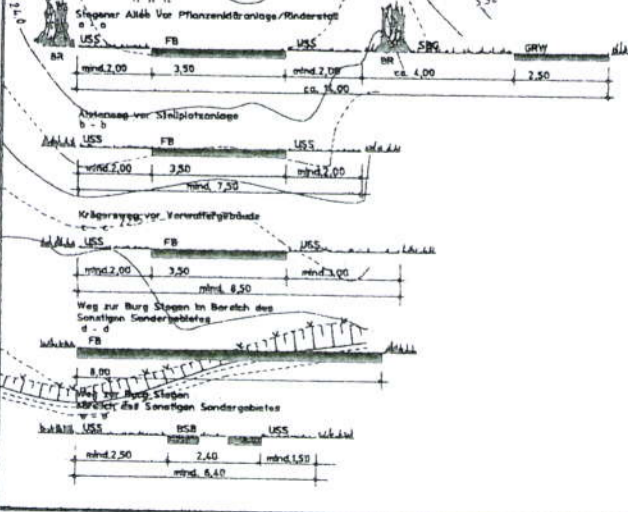 Stegener Allee Vor Pflanzenkläranlage/Rinderstall
a - a
USS FB USS SBG GRW
BR BR
mind.2,00 3,50 mind.2,00 ca. 4,00 2,50
ca.
vor Stellplatzanlage
b - b
USS FB USS
mind.2,00 3,50 mind.2,00
mind. 7,50
vor Verwaltergebäude
USS FB USS
mind.2,00 3,50 mind.3,00
mind. 8,50
Weg zur Burg Stegen im Bereich des
Sonstigen Sondergebietes
d - d
FB
8,00
Weg zur Burg Stegen
Bereich des Sonstigen Sondergebietes
USS BSB USS
mind.2,50 2,40 mind.1,50
mind. 6,40